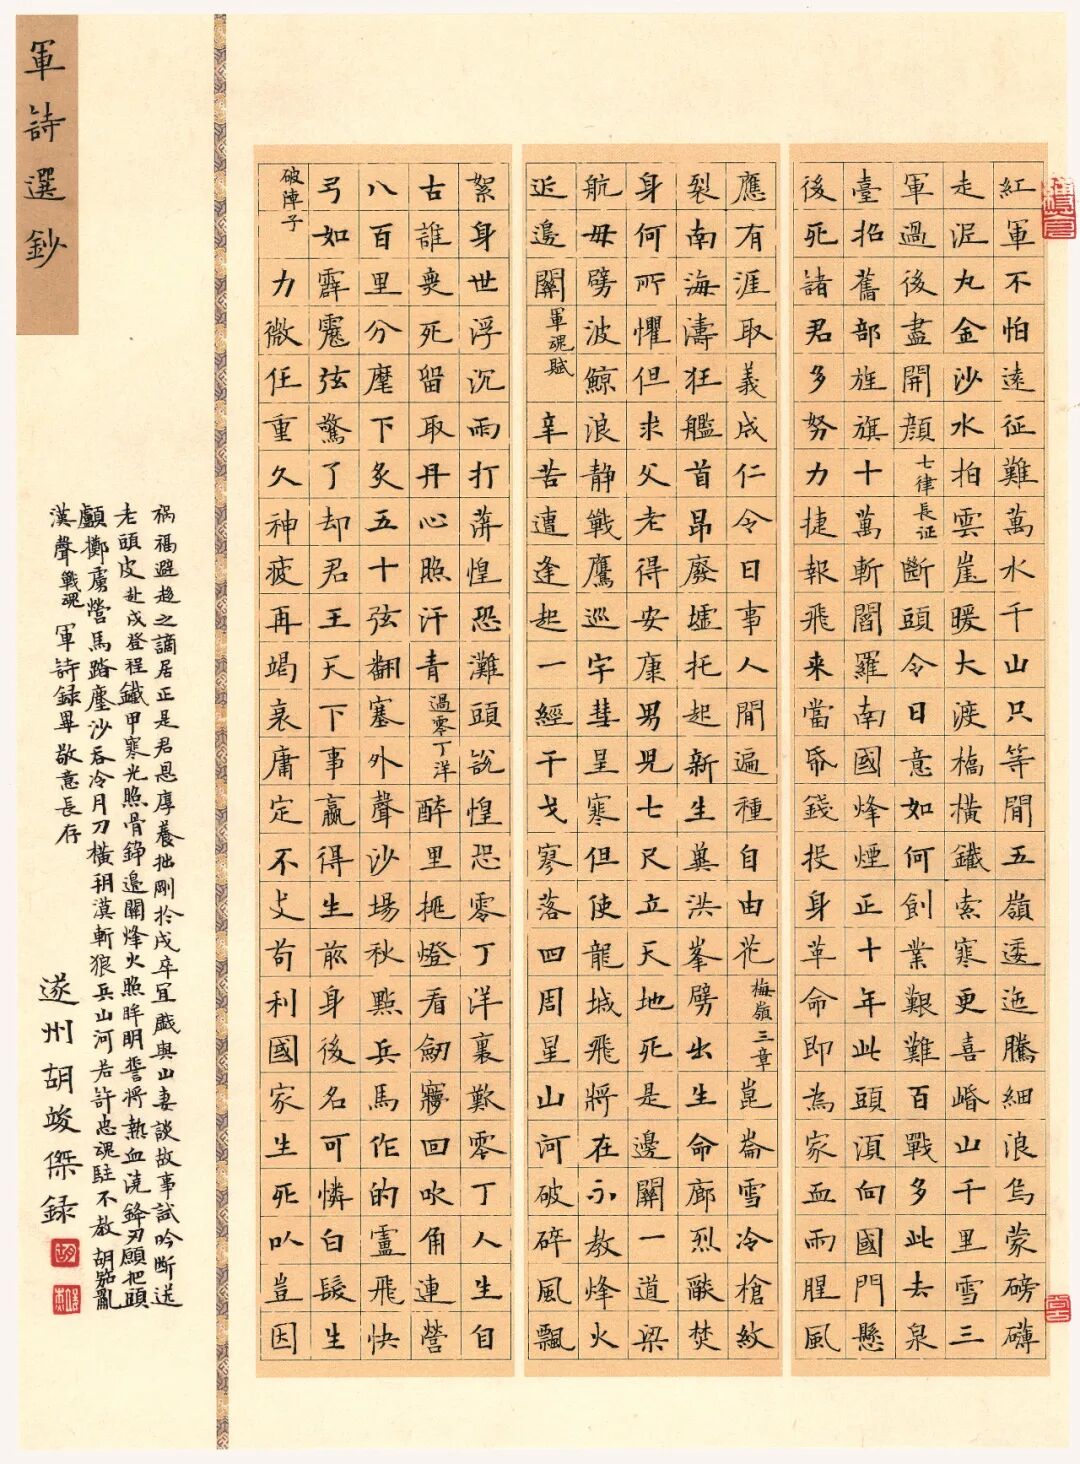 軍詩選鈔
紅軍不怕遠征難萬水千山只等閒五嶺逶迤騰細浪烏蒙磅礴
走泥丸金沙水拍雲崖暖大渡橋橫鐵索寒更喜岷山千里雪三
軍過後盡開顏七律長征斷頭今日意如何創業艱難百戰多此去泉
臺招舊部旌旗十萬斬閻羅南國烽煙正十年此頭須向國門懸
後死諸君多努力捷報飛来當帋錢投身革命即為家血雨腥風
應有涯取義成仁今日事人間遍種自由花梅嶺三章崑崙雪冷槍紋
裂南海濤狂艦首昂廢墟托起新生冀洪峯劈出生命廊烈燄焚
身何所懼但求父老得安康男兒七尺立天地死是邊關一道梁
航母劈波鯨浪静戰鷹巡宇彗呈寒但使龍城飛將在不教烽火
近邊關軍魂賦辛苦遭逢起一經干戈寥落四周星山河破碎風飄
絮身世浮沉雨打萍惶恐灘頭說惶恐零丁洋裏歎零丁人生自
古誰無死留取丹心照汗青過零丁洋醉里挑燈看劍夢回吹角連營
八百里分麾下炙五十弦翻塞外聲沙場秋點兵馬作的盧飛快
弓如霹靂弦驚了却君王天下事贏得生前身後名可憐白髮生
破陣子力微任重久神疲再竭衰庸定不支苟利國家生死以豈因
禍福避趨之謫居正是君恩厚養拙剛於戍卒宜戲與山妻談故事試吟断送
老頭皮赴戍登程鐵甲寒光照骨錚邊關烽火照眸明誓將熱血澆鋒刃願把頭
顱擲虜營馬踏塵沙吞冷月刀橫朔漠斬狼兵山河若許忠魂駐不教胡笳亂
漢聲戰魂軍詩録畢敬意長存
遂州胡竣傑録